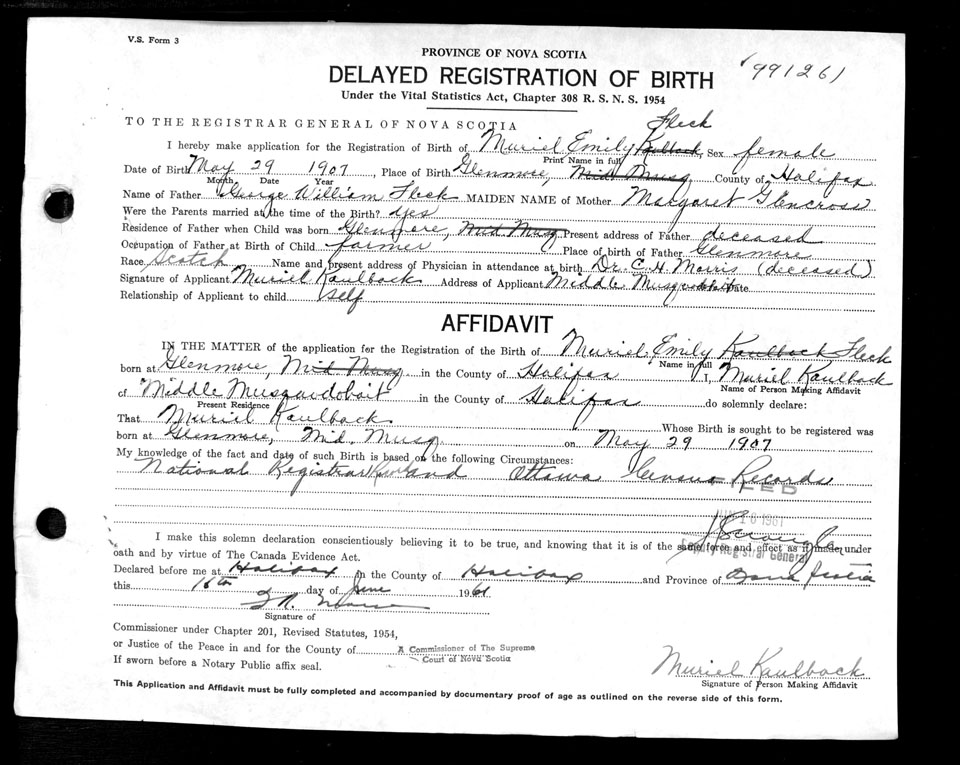 V.S. Form 3
PROVINCE OF NOVA SCOTIA
991261
DELAYED REGISTRATION OF BIRTH
Under the Vital Statistics Act, Chapter 308 R. S. N. S. 1954
TO THE REGISTRAR GENERAL OF NOVA SCOTIA
Fleck
I hereby make application for the Registration of Birth of Muriel Emily Kaulback, Sex female
Print Name in full
Date of Birth May 29 1907, Place of Birth Glenmore, Mid Musq County of Halifax
Month Date Year
Name of Father George William Fleck MAIDEN NAME of Mother Margaret Glencross
Were the Parents married at the time of the Birth? Yes
Residence of Father when Child was born Glenmore, Mid Musq Present address of Father deceased
Occupation of Father at Birth of Child farmer Place of birth of Father Glenmore
Race Scotch Name and present address of Physician in attendance at birth Dr. C. H. Morris (deceased)
Signature of Applicant Muriel Kaulback Address of Applicant Middle Musquodoboit Date
Relationship of Applicant to child self
AFFIDAVIT
IN THE MATTER of the application for the Registration of the Birth of Muriel Emily Kaulback Fleck
Name in full
born at Glenmore, Mid Musq in the County of Halifax I, Muriel Kaulback
Name of Person Making Affidavit
of Middle Musquodoboit in the County of Halifax do solemnly declare:
Present Residence
That Muriel Kaulback Whose Birth is sought to be registered was
born at Glenmore, Mid. Musq. on May 29 1907
My knowledge of the fact and date of such Birth is based on the following Circumstances:
National Registrar and Ottawa Census Records
16 1961
I make this solemn declaration conscientiously believing it to be true, and knowing that it is of the same force and effect as if made under
Registrar General
oath and by virtue of The Canada Evidence Act.
Declared before me at Halifax in the County of Halifax and Province of Nova Scotia
this 16th day of June 1961
Signature of
Commissioner under Chapter 201, Revised Statutes, 1954,
or Justice of the Peace in and for the County of A Commissioner of The Supreme
Court of Nova Scotia
If sworn before a Notary Public affix seal.
Muriel Kaulback
Signature of Person Making Affidavit
This Application and Affidavit must be fully completed and accompanied by documentary proof of age as outlined on the reverse side of this form.